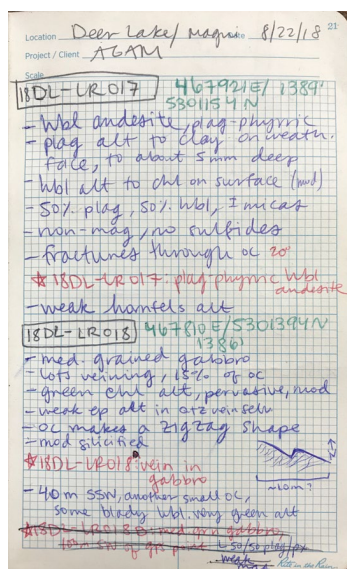 21
Location Deer Lake/Magnie 8/22/18
Project / Client AGAM
Scale
18DL-LR017 467921E/ 1389'
5301154 N
- Hbl andesite, plag-phyric
- plag alt to clay on weath.
face, to about 5 mm deep
- Hbl alt to chl on surface (mod)
- 50% plag, 50% hbl, I micas
- non-mag, no sulfides
- fractures through oc 20°
☆ 18DL-LR017. plag-phyric Hbl
andesite
- weak hornfels alt
18DL-LR018 467810E/5301394N
1386'
- med. grained gabbro
- lots veining, 15% of oc
- green chl alt, pervasive, mod
- weak ep alt in qtz vein selv
- oc makes a zigzag shape
- mod silicified
☆ 18DL-LR018: vein in
gabbro
~10m?
- 40m SSW, another small oc,
some blady hbl. very green alt
☆ 18DL-LR018B: med grn gabbro,
10m SW of gps point
50/50 plag/px
weak
Rite in the Rain